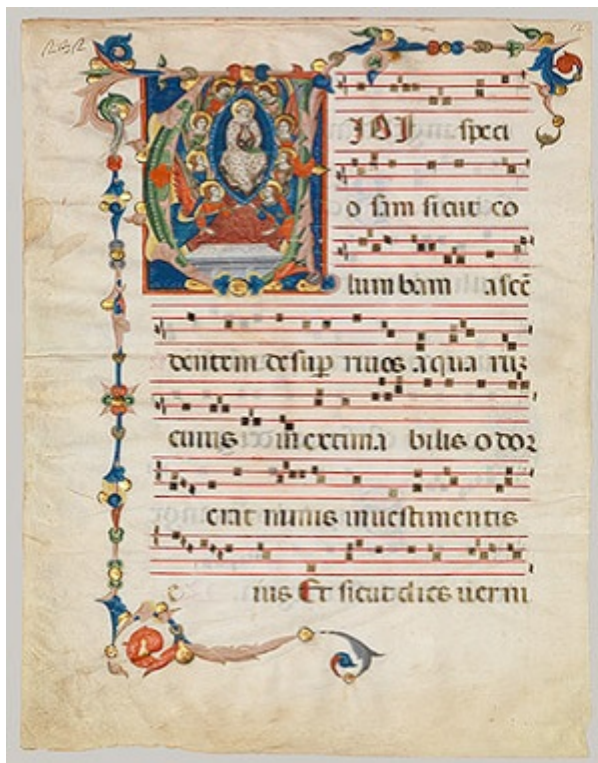 VIDI speci
o sam sicut co
lum bam ascē
dentem desup riuos aqua rū
cuius in extima bilis o dor
erat nimis in uestimentis
e ius Et sicut dies uerni